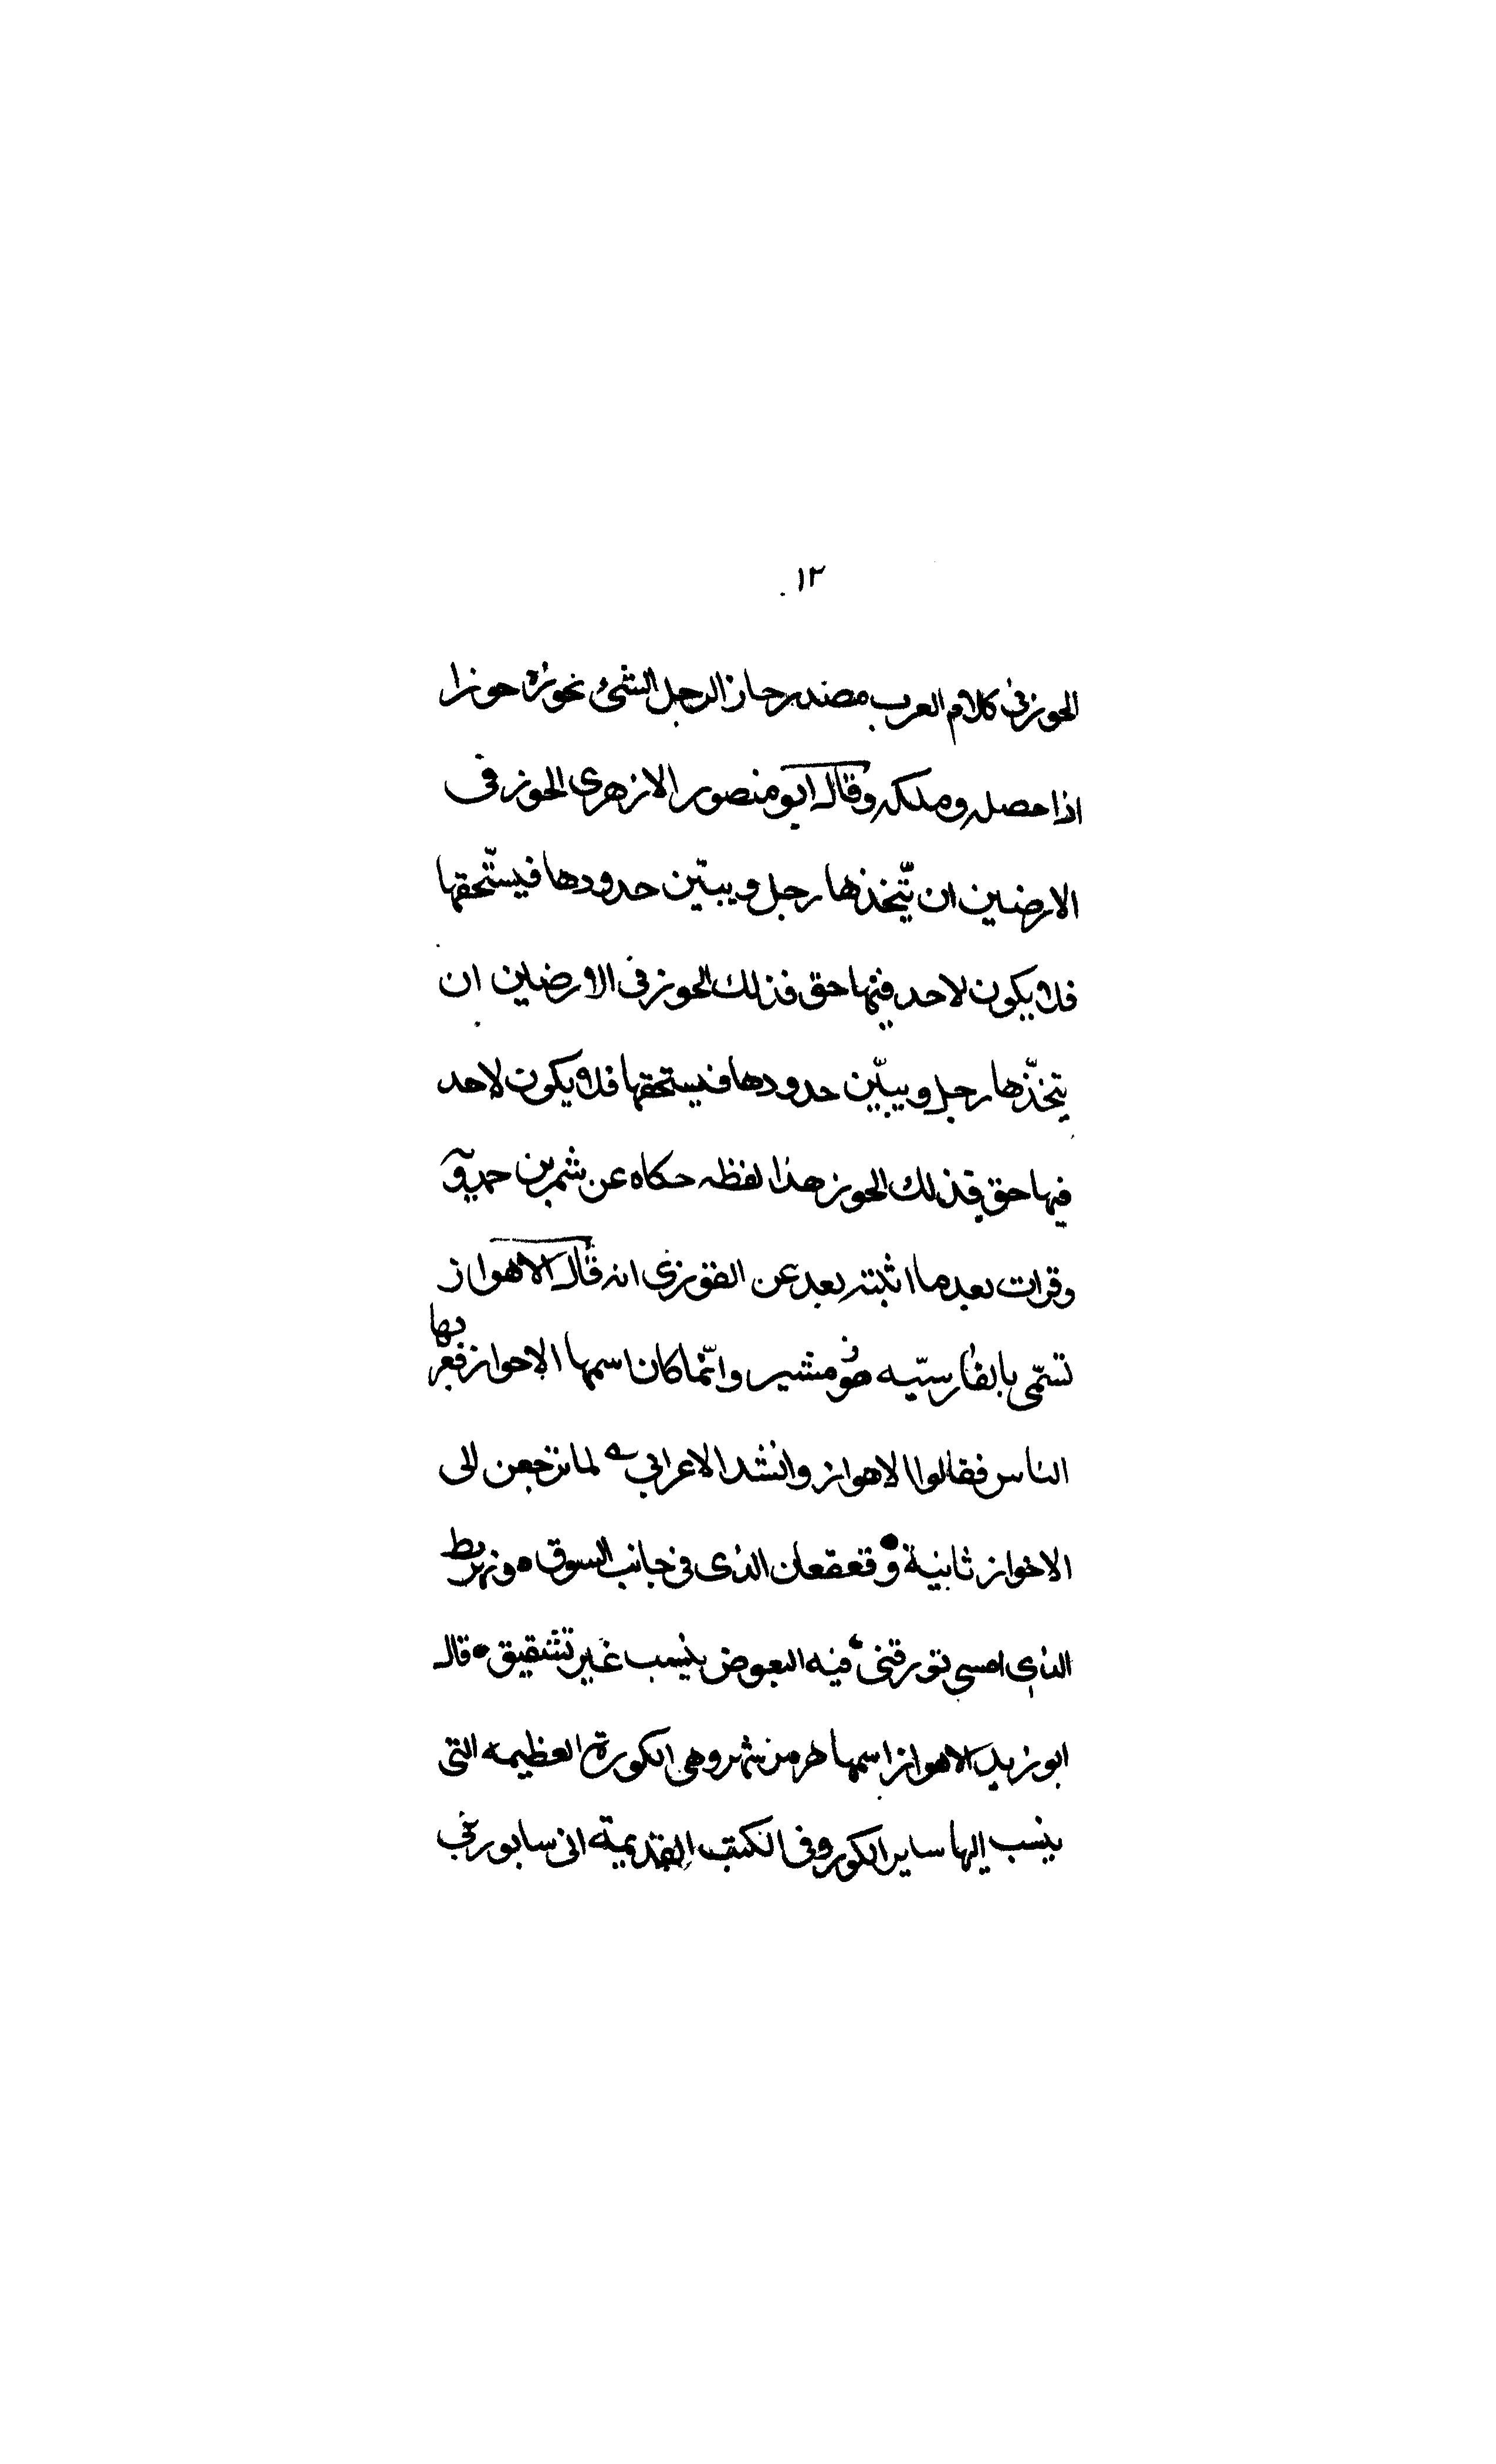 ١٢
الحوز فى كلام العرب مصدر حاز الرجل الشئ يحوزه حوزا
اذا حصله وملكه وقال ابو منصور الازهرى الحوز فى
الارضين ان يتّخذها رجل ويبيّن حدودها فيستحقها
فلا يكون لاحد فيها حق فذلك الحوز فى الارضين ان
يتخذّها رجل ويبيّن حدودها فيستحقها فلا يكون لاحد
فيها حق فذلك الحوز هذا لفظه حكاه عن شمر بن حمدو
وقرات بعد ما اثبته بعد عن التوزى انه قال الاهواز
تسمّى بالفارسيّه هومشير وانّما كان اسمها الاحواز فعربها
الناس فقالوا الاهواز وانشد الاعرابى لما ترجعن الى
الاخواز ثانية وقعقعان الذى فى جانب السوق ونهر بط
الذى امسى تورقنى فيه البعوض بنسب غير تشقيق قال
ابو زيد الاهواز اسمها هرمز شهر وهى الكورة العظيمه التى
ينسب اليها ساير الكور وفى الكتب القديمة ان سابور بنى